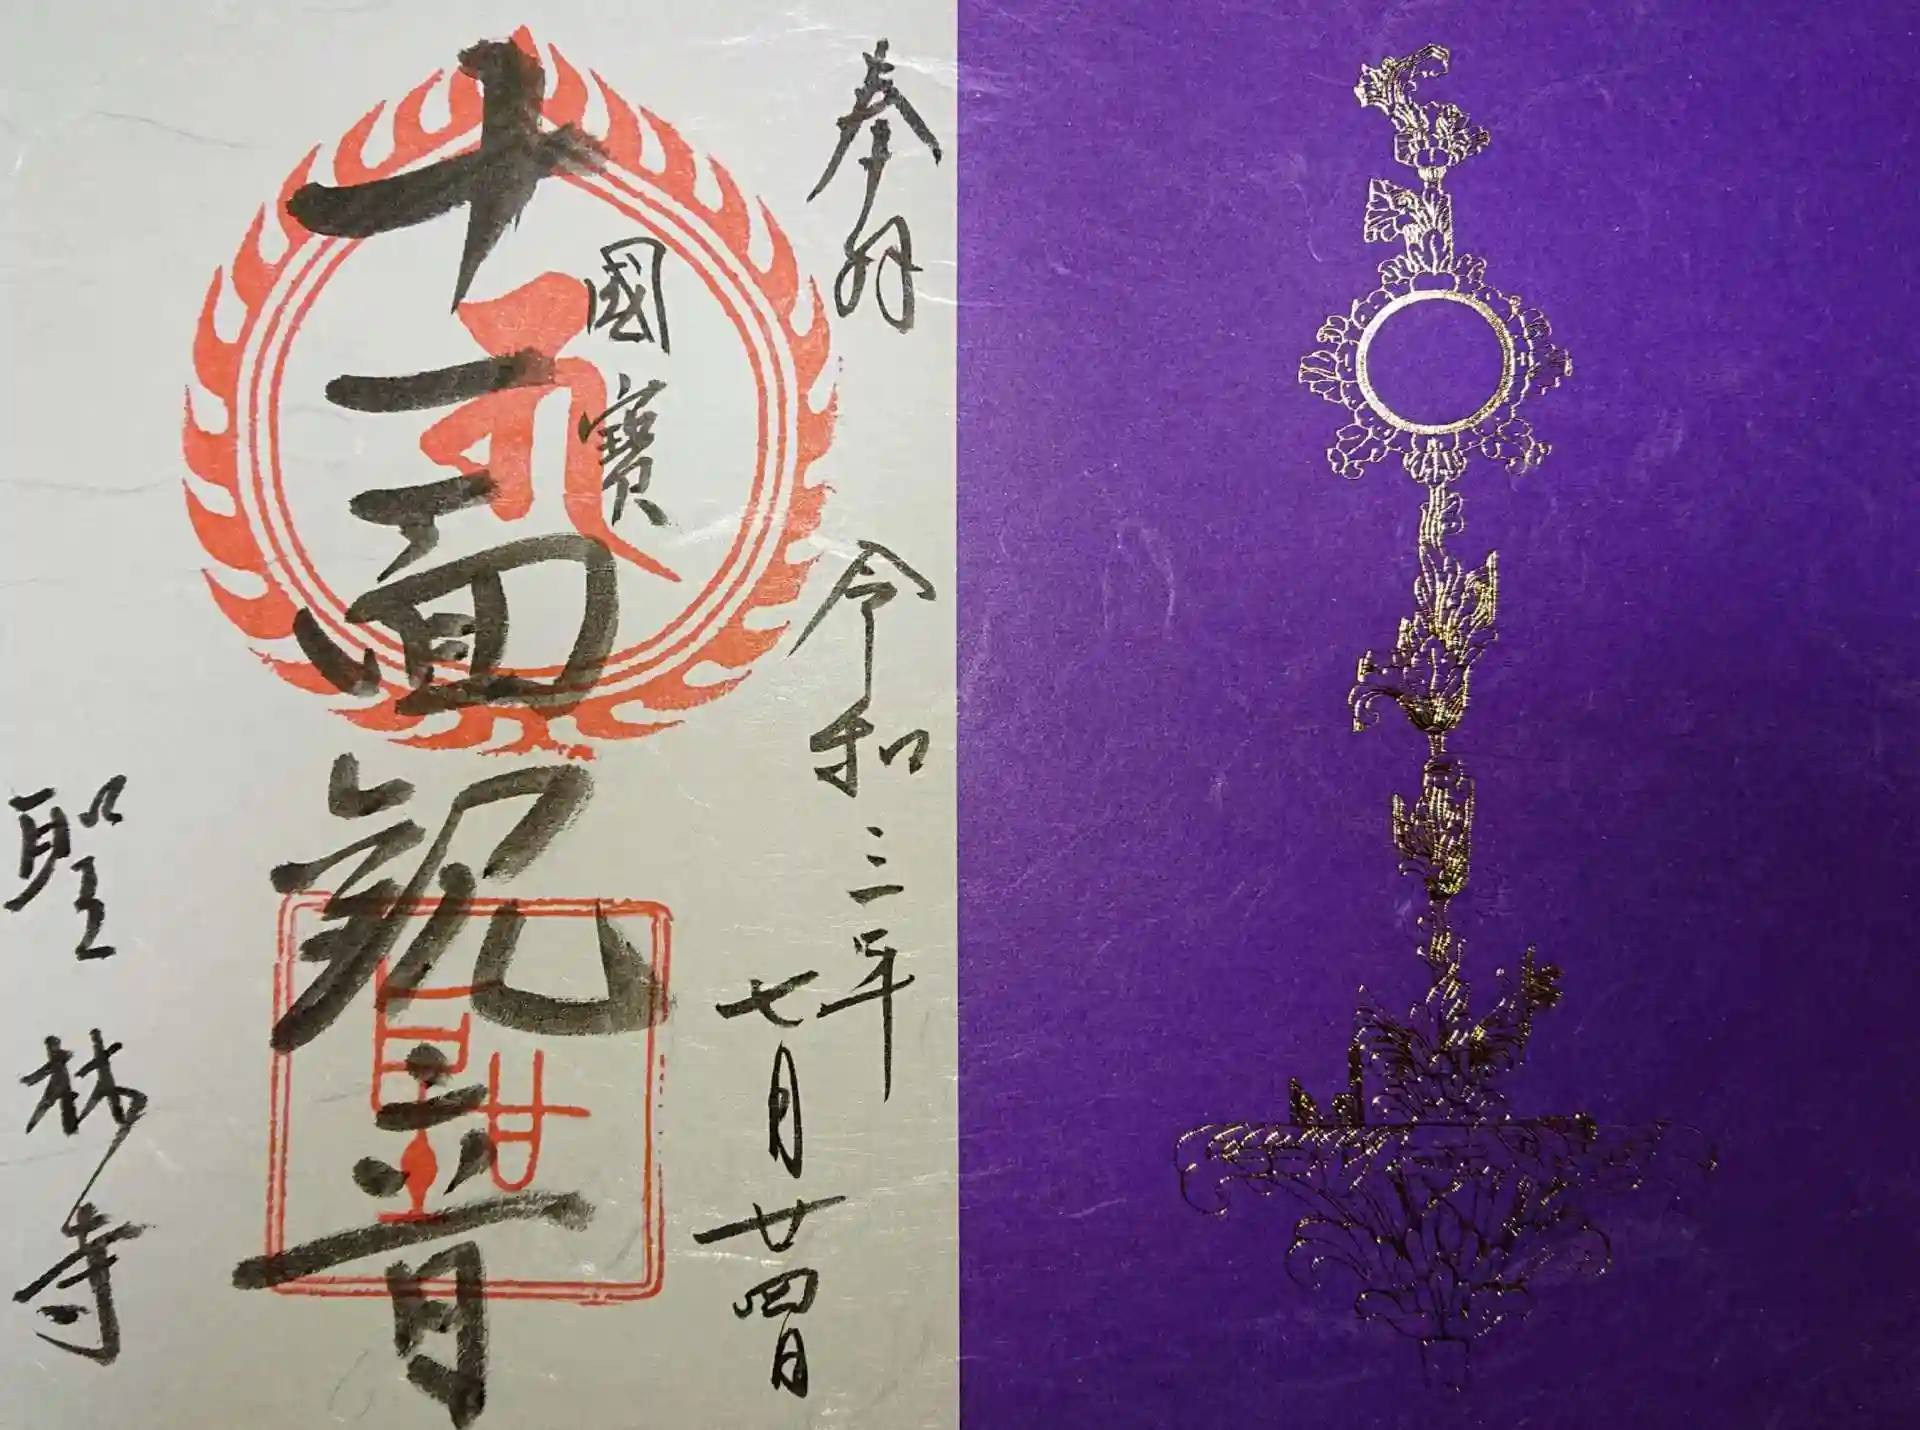 奉拜
令和三年
七月廿四日
國寶
十一面観音
聖林寺